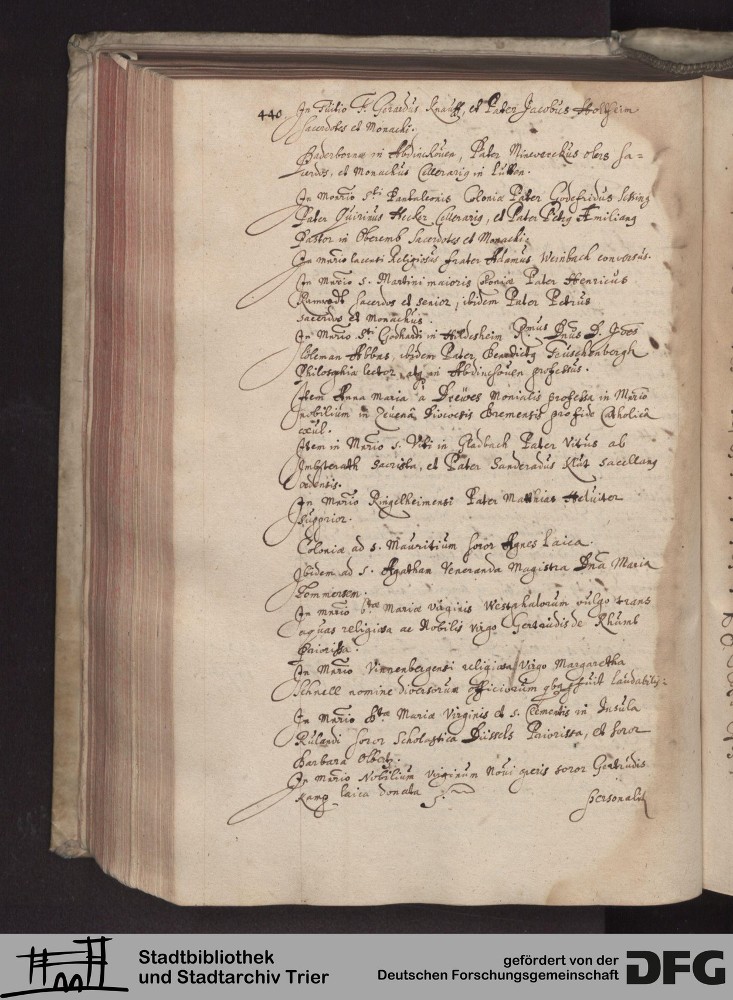 440. In Tuitio F. Gerardus Knauff, et Pater Jacobus Holtheim
Sacerdotes et Monachi.
Paderbornæ in Abdinckhoven, Pater Minwerckus olers sa=
cerdos, et Monachus Cellerarig in Lütten.
In Monrio Sti Pantaleonis Coloniæ Pater Godefridus
Pater Quirinus Hecker Cellerarig, et Pater Petrg Æmiliang
Pastor in Oberemb Sacerdotes et Monachi;
In mnrio lacensi Religiosus frater Adamus Weinbach conversus.
In Mnrio S. Martini maioris Coloniæ Pater Henricus
Ramrodt Sacerdos et senior, ibidem Pater Petrus
sacerdos et Monachus.
In Mnrio Sti Godhardi in Hildesheim Rmus Dnus D. Joes
Coleman Abbas, ibidem Pater Benedictg Teuschenbergh
Philosophiæ lector, atg in Abdinchoven professus.
Item Anna Maria à Drewes Monialis professa in Mnrio
nobilium in Zevena Dioocesis Bremensis pro fide Catholica
exul.
Item in Mnrio S. Viti in Gladbach Pater Vitus ab
Imbsterath Sacrista, et Pater Sanderadus Klut Sacellang
In Mnrio Ringelheimensi Pater Matthias Helwiter
Supprior.
Coloniæ ad S. Mauritium Soror Agnes Laica.
Ibidem ad S. Agatham Veneranda Magistra Dna Maria
Pommersem.
In mnrio btæ Mariæ Virginis Westphalorum vulgo trans
aquas religiosa ac Nobilis virgo Gertrudis de Rhumb
Priorissa.
In Mnrio Vinnenbergensi religiosa Virgo Margaretha
Schnell nomine diversorum officiorum gbg fuit laudabilis:
In Mnrio Btæ Mariæ Virginis et S. Clementis in Insula
Rulandi Soror Scholastica Düssels Priorissa, et Soror
Barbara Olbertz.
In Mnrio Nobilium Virginum Novi operis Soror Gertrudis
Kamp laica donata
Personalit
Stadtbibliothek
und Stadtarchiv Trier
gefördert von der
Deutschen Forschungsgemeinschaft
DFG